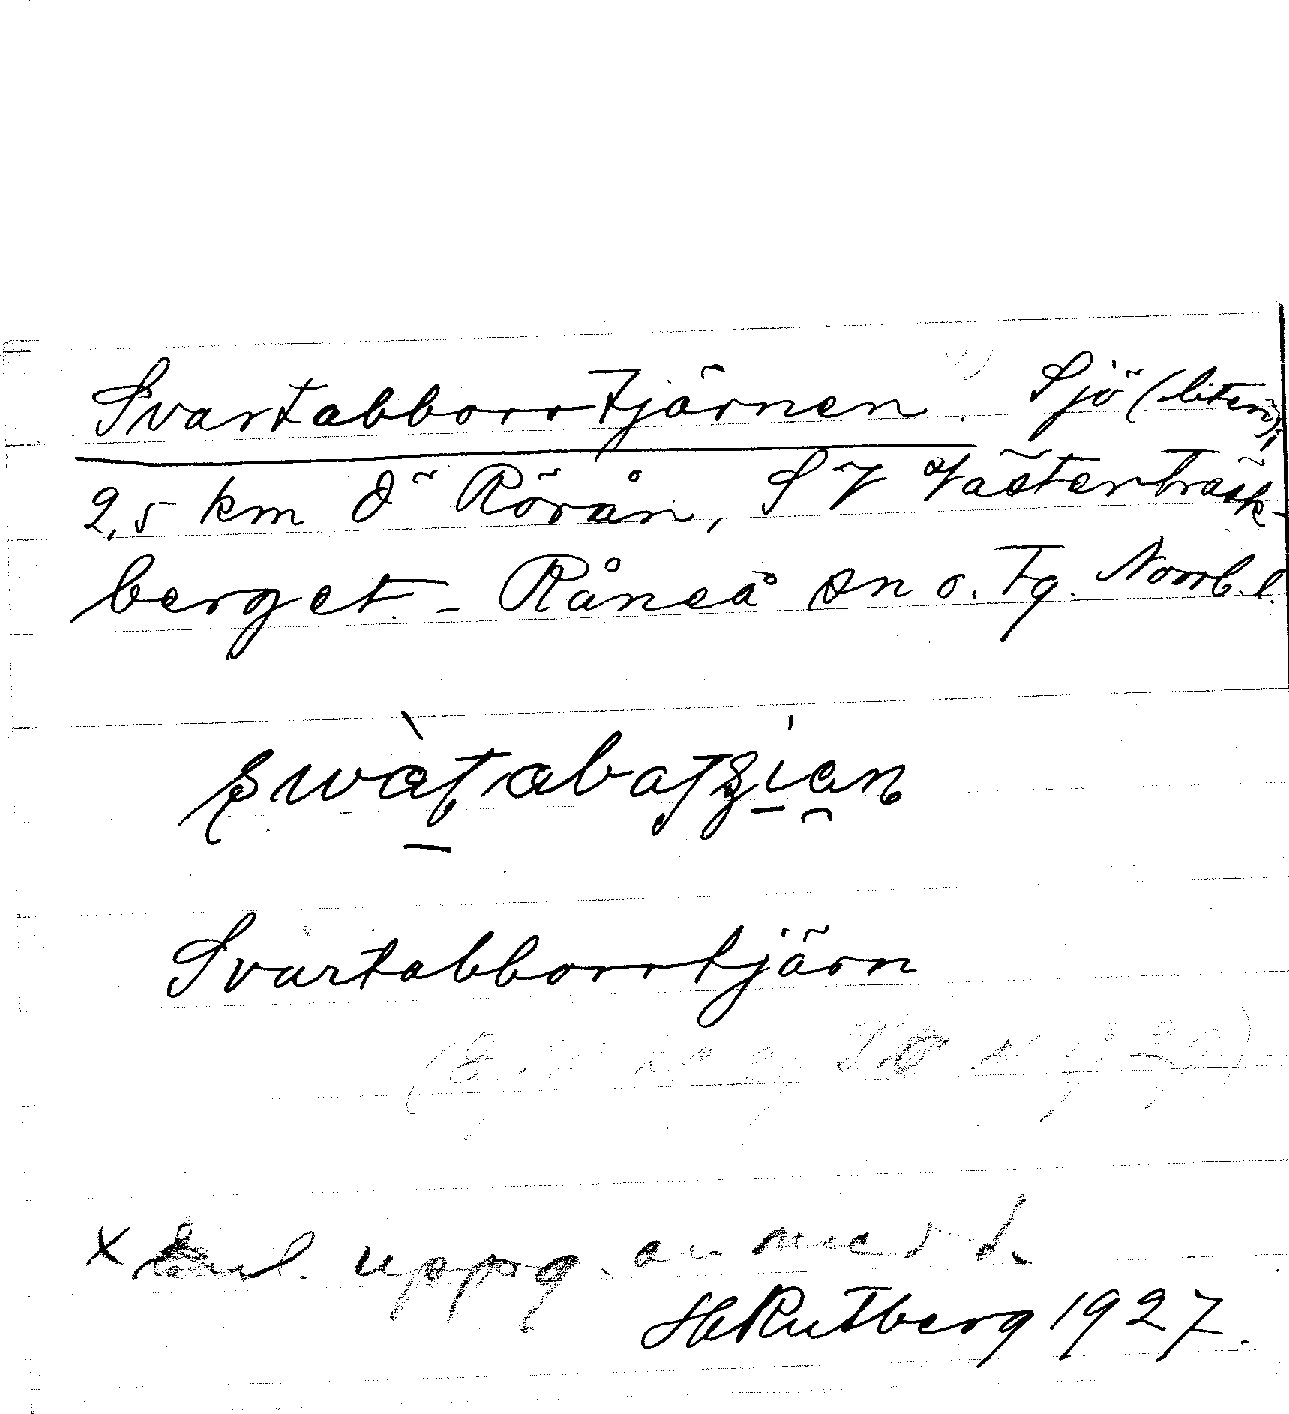 Svartabborrtjärnen. Sjö (liten);
2,5 km Ö Rörån, SV Västerträsk-
berget - Råneå sn o. Tg. Norrb. l.
Svartabborrtjärn
x Enl. uppg. anmärkt.
HRutberg 1927.